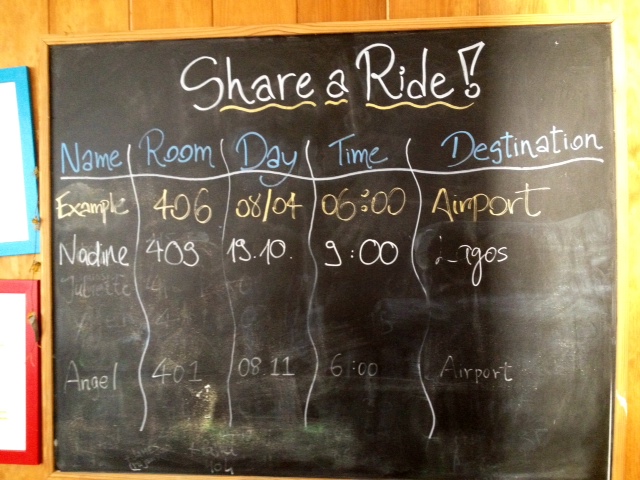 Share a Ride!
Name Room Day Time Destination
Example 406 08/04 06:00 Airport
Nadine 409 19.10. 9:00 Lagos
Juliette
Anael 401 08.11 6:00 Airport